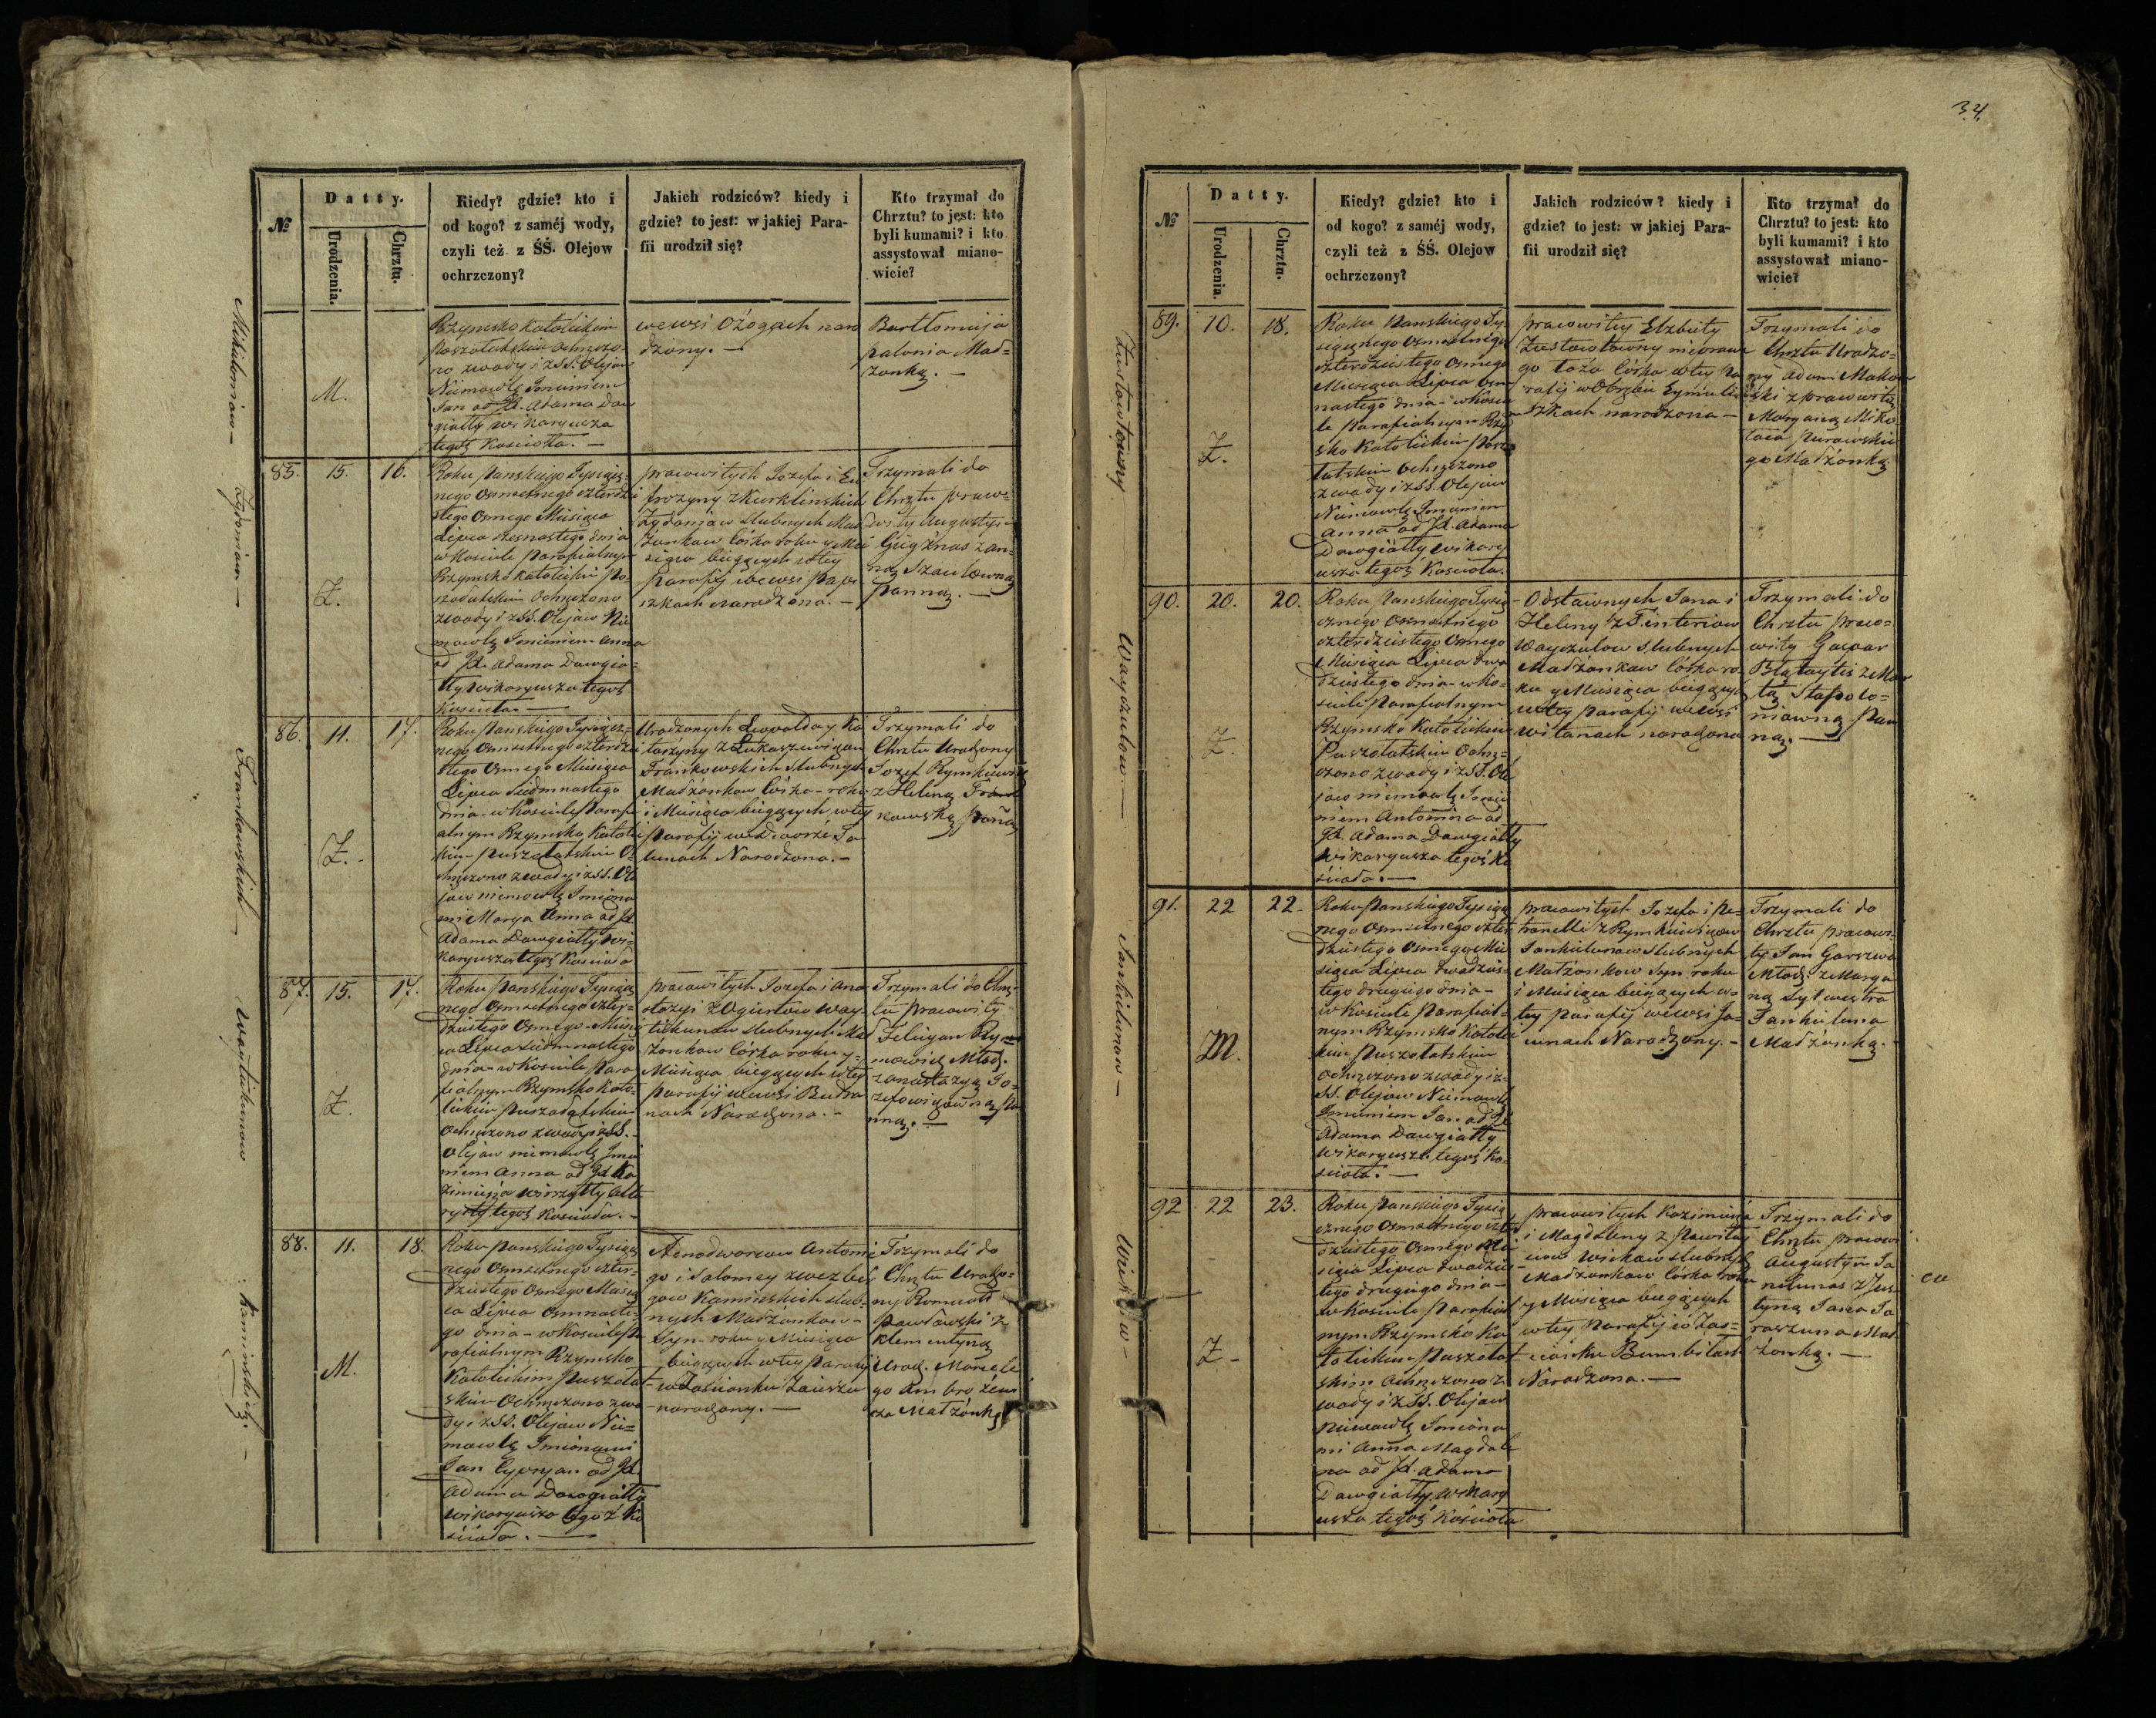 34.
№
Datty.
Urodzenia.
Chrztu.
Kiedy? gdzie? kto i
od kogo? z saméj wody,
czyli też z ŚŚ. Olejow
ochrzczony?
Jakich rodziców? kiedy i
gdzie? to jest: w jakiej Para-
fii urodził się?
Kto trzymał do
Chrztu? to jest: kto
byli kumami? i kto
assystował miano-
wicie?
M.
Rzymsko Katolickim
Poszołatskim ochrzczo-
no z wody i z SS. Olejow
Niemowlę Imieniem
Jan od Jx. Adama Dow
giałły wikaryusza
tegoż Kościoła. —
we wsi Ożogach naro
dzony. —
Bartłomieja
Mał-
żonką. —
85. 15. 16.
Ż.
Roku Pańskiego Tysiącz-
nego Osmsetnego czterdzie
stego Osmego Miesiąca
Lipca szesnastego dnia
w Kościele Parafialnym
Rzymsko Katolickim Po
szołatskim Ochrzczono
z wody i z SS. Olejow Nie
mowlę Imieniem Anna
od Jx. Adama Dowgia-
łły wikaryusza tegoż
Kościoła. —
pracowitych Jozefa i Eu
frozyny z Kurklinskich
Żydoniow slubnych Mał
żonkow córka roku y Mie
siąca bieżących w tey
Parafij we wsi
narodzona. —
Trzymali do
Chrztu praco-
wity Augustyn
z An-
ną
Panną. —
86. 11. 17.
Ż.
Roku Pańskiego Tysiącz-
nego Osmsetnego czterdzie
stego Osmego Miesiąca
Lipca siedmnastego
dnia w Kościele Parafi
alnym Rzymsko Katoli
ckim Puszołatskim O-
chrzczono z wody i z SS. Ole
jow niemowlę Imiona
mi Marya Anna od Jx.
Adama Dowgiałły wi-
karyusza tegoż Kościoła
Urodzonych Leopolda y Ka
tarzyny z Łukaszewiczow
Frankowskich slubnych
Małżonkow córka roku
i Miesiąca bieżących w tey
Parafij we dworze
Narodzona. —
Trzymali do
Chrztu Urodzony
Jozef Rymkiewicz
z Heleną Fran
kowską Panną
87. 15. 17.
Ż.
Roku Pańskiego Tysiącz
nego Osmsetnego czter-
dziestego Osmego Miesią
ca Lipca siedmnastego
dnia w Kościele Para
fialnym Rzymsko Kato-
lickim Puszołatskim
Ochrzczono z wody i z SS.
Olejow niemowlę Imie
niem Anna od Jx. Ka
zimierza
tegoż Kościoła. —
pracowitych Jozefa i Ana
stazyi z Way-
tiekunow slubnych Mał
żonkow córka roku y
Miesiąca bieżących w tey
Parafij we wsi
Narodzona. —
Trzymali do Chrz-
tu Pracowity
Felicyan
Młod.
z Anastazyą Jo-
zefowiczowną Pa
nną. —
88. 11. 18.
M.
Roku Pańskiego Tysiącz
nego Osmsetnego czter-
dziestego Osmego Miesią
ca Lipca Osmnaste-
go dnia w Kościele Pa
rafialnym Rzymsko
Katolickim Puszołat
skim Ochrzczono z wo
dy i z SS. Olejow Nie-
mowlę Imionami
Jan Cypryan od Jx.
Adama Dowgiałły
wikaryusza tegoż Ko
ścioła. —
Antonie
go i Salomey
Kaminskich slub-
nych Małżonkow
syn roku y Miesiąca
bieżących w tey Parafij
w Zaścianku
narodzony. —
Trzymali do
Chrztu Urodzo-
ny Romuald
Pawłowski z
Klementyną
Urodz. Marcele
go Ambrożewi
cza Małżonką
Mikulonisow —
Żydoniow —
Frankowskich —
Waytiekunow
Kaminskich. —
№
Datty.
Urodzenia.
Chrztu.
Kiedy? gdzie? kto i
od kogo? z saméj wody,
czyli też z ŚŚ. Olejow
ochrzczony?
Jakich rodziców? kiedy i
gdzie? to jest: w jakiej Para-
fii urodził się?
Kto trzymał do
Chrztu? to jest: kto
byli kumami? i kto
assystował miano-
wicie?
89. 10. 18.
Ż.
Roku Pańskiego Ty-
siącznego Osmsetnego
czterdziestego Osmego
Miesiąca Lipca Osm
nastego dnia w Koscie
le Parafialnym Rzym
sko Katolickim Poszo
łatskim ochrzczono
z wody i z SS. Olejow
Niemowlę Imieniem
Anna od Jx. Adama
Dowgiałły wikary
usza tegoż Kościoła.
pracowitey Elżbiety
nieprawe
go łoża córka w tey Pa
rafij w Obrębie
narodzona —
Trzymali do
Chrztu Urodzo-
ny Adam
z pracowitą
Maryaną Miko
łaia
go Małżonką
90. 20. 20.
Ż.
Roku Pańskiego Tysią
cznego Osmsetnego
czterdziestego Osmego
Miesiąca Lipca dwu
dziestego dnia w Ko-
ściele Parafialnym
Rzymsko Katolickim
Puszołatskim Ochrz-
czono z wody i z SS. Ole
jow niemowlę Imie
niem Antonina od
Jx. Adama Dowgiałły
wikaryusza tegoż Ko
ścioła. —
Odstawnych Jana i
Heleny z
Wayszulow slubnych
Małżonkow córka ro-
ku y Miesiąca bieżących
w tey Parafij we wsi
Witanach narodzona
Trzymali do
Chrztu praco-
wity Gaspar
z Mar
tą
Pan
ną. —
91. 22 22.
M.
Roku Pańskiego Tysiącz
nego Osmsetnego czter
dziestego Osmego Mie
siąca Lipca dwudzies-
tego drugiego dnia
w Kościele Parafial-
nym Rzymsko Katolic
kim Puszołatskim
ochrzczono z wody i z
SS. Olejow Niemowlę
Imieniem Jan od Jx.
Adama Dowgiałły
wikaryusza tegoż Ko-
ścioła. —
pracowitych Jozefa i Pe-
tronelli z Rymkiewiczow
Jankielunow slubnych
Małżonkow syn roku
i Miesiąca bieżących w
tey Parafij we wsi
Narodzony. —
Trzymali do
Chrztu pracowi-
ty Jan Garszwa
Młodz. z Marya
ną Sylwestra
Jankieluna
Małżonką. —
92 22 23.
Ż —
Roku Pańskiego Tysią
cznego Osmsetnego czter
dziestego Osmego Mie
siąca Lipca dwudzies-
tego drugiego dnia
w Kościele Parafial
nym Rzymsko Ka
tolickim Puszołat
skim Ochrzczono z
wody i z SS. Olejow
Niemowlę Imiona
mi Anna Magdale
na od Jx. Adama
Dowgiałły Wikary
usza tegoż Kościoła
pracowitych Kazimierza
i Magdaleny z
slubnych
Małżonkow córka roku
y Miesiąca bieżących
w tey Parafij w Zaś-
cianku Bumbilach
Narodzona. —
Trzymali do
Chrztu pracowi
Augustyn
z Jus
tyną Jana
Mał
żonką. —
Wayszulow —
Jankielunow —